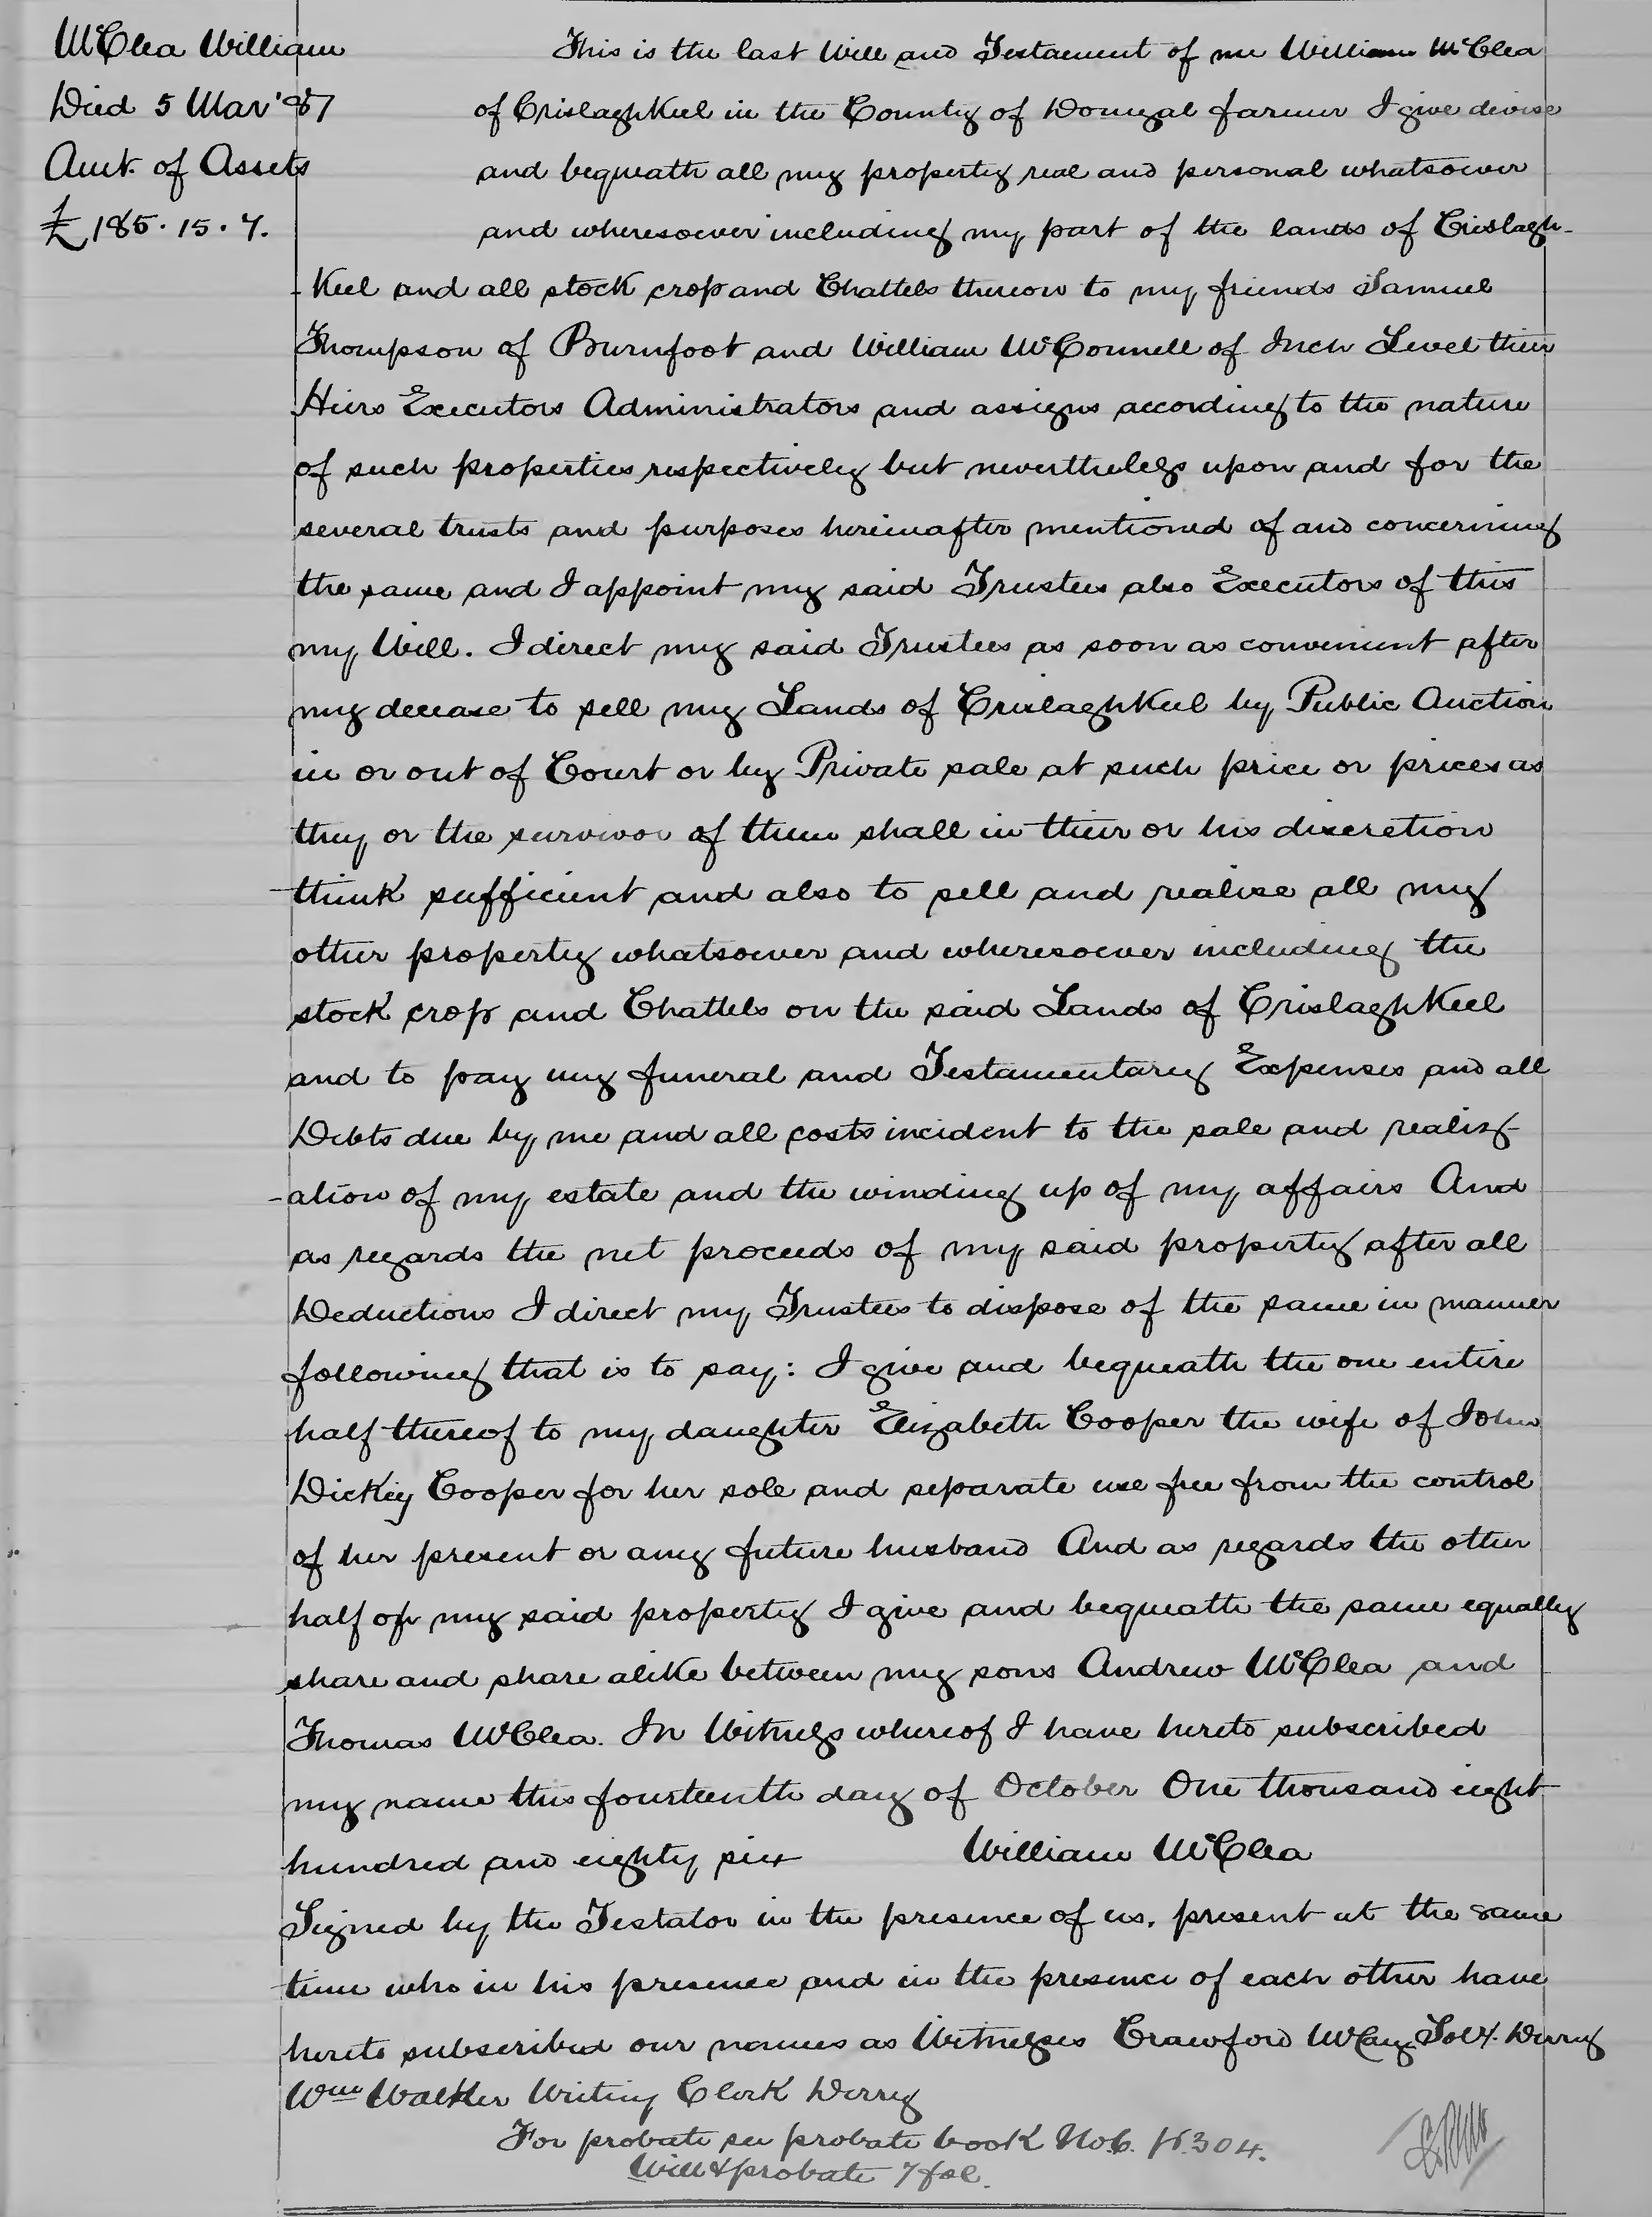 McClea William
Died 5 Mar '87
Amt. of Assets
£185.15.7.
This is the last Will and Testament of me William McClea
of Crislaghkeel in the County of Donegal farmer I give devise
and bequeath all my property real and personal whatsoever
and wheresoever including my part of the lands of Crislagh-
-keel and all stock crop and Chattels thereon to my friends Samuel
Thompson of Burnfoot and William McConnell of Inch Level their
Heirs Executors Administrators and assigns according to the nature
of such properties respectively but nevertheless upon and for the
several trusts and purposes hereinafter mentioned of and concerning
the same and I appoint my said Trustees also Executors of this
my Will. I direct my said Trustees as soon as convenient after
my decease to sell my Lands of Crislaghkeel by Public Auction
in or out of Court or by Private sale at such price or prices as
they or the survivor of them shall in their or his discretion
think sufficient and also to sell and realise all my
other property whatsoever and wheresoever including the
stock crop and Chattels on the said Lands of Crislaghkeel
and to pay my funeral and Testamentary Expenses and all
Debts due by me and all costs incident to the sale and realiz-
-ation of my estate and the winding up of my affairs And
as regards the net proceeds of my said property after all
Deductions I direct my Trustees to dispose of the same in manner
following that is to say: I give and bequeath the one entire
half thereof to my daughter Elizabeth Cooper the wife of John
Dickey Cooper for her sole and separate use free from the control
of her present or any future husband And as regards the other
half of my said property I give and bequeath the same equally
share and share alike between my sons Andrew McClea and
Thomas McClea. In Witness whereof I have hereto subscribed
my name this fourteenth day of October One thousand eight
hundred and eighty six William McClea
Signed by the Testator in the presence of us, present at the same
time who in his presence and in the presence of each other have
hereto subscribed our names as Witnesses Crawford McCay Solr. Derry
Wm Walker Writing Clerk Derry
For probate see probate book No6. p.304.
Will & probate 7 fol.